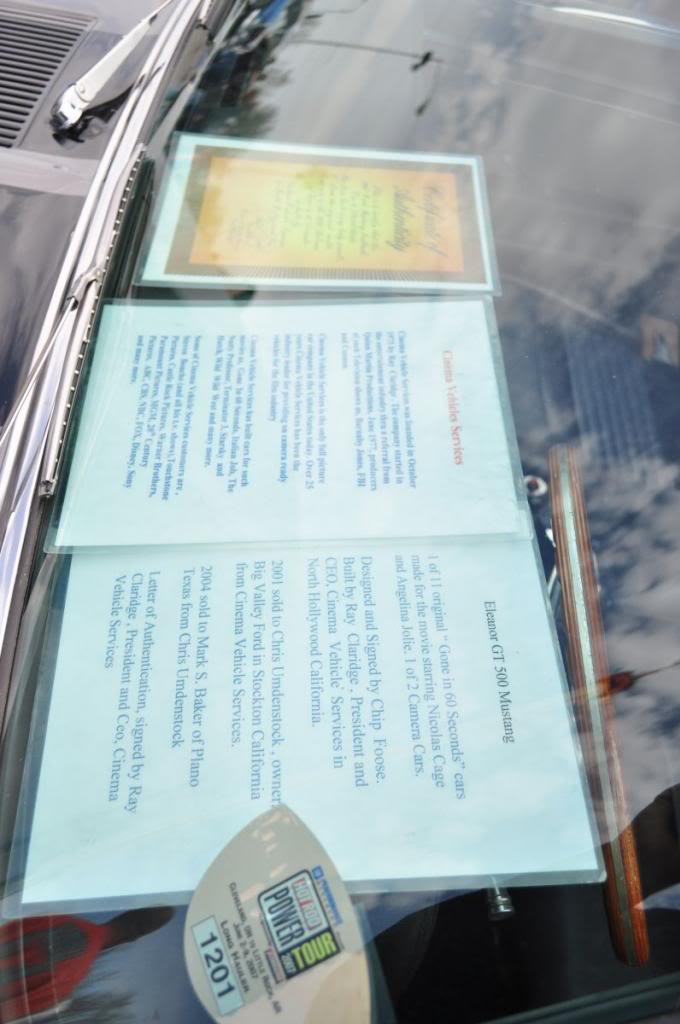 Certificate of
Authenticity
Cinema Vehicles Services
Cinema Vehicle Services was founded in October
1975 by Ray Claridge. The company started in
the entertainment industry then a referral from
Quinn Martin Productions, June 1977, producers
of such Television shows as, Barnaby Jones, FBI
and Cannon.
Cinema Vehicle Services is the only full picture
car company in the United States today. Over 25
years Cinema Vehicle Services has been the
industry leader for providing on camera ready
vehicles for the film industry
Cinema Vehicle Services has built cars for such
movies as, Gone In 60 Seconds, Italian Job, The
Nutty Professor, Terminator 3, Starsky and
Hutch, Wild Wild West and many more.
Some of Cinema Vehicle Services customers are ,
Steven Bochco (and all his t.v. shows),Touchstone
Pictures, Castle Rock Pictures, Warner Brothers,
Paramount Pictures, MGM, 20th Century
Pictures, ABC, CBS, NBC, FOX, Disney, Sony
and many more.
Eleanor GT 500 Mustang
1 of 11 original " Gone in 60 Seconds" cars
made for the movie starring Nicolas Cage
and Angelina Jolie. 1 of 2 Camera Cars.
Designed and Signed by Chip Foose.
Built by Ray Claridge , President and
CEO, Cinema Vehicle Services in
North Hollywood California.
2001 sold to Chris Umdenstock , owner
Big Valley Ford in Stockton California
from Cinema Vehicle Services.
2004 sold to Mark S. Baker of Plano
Texas from Chris Umdenstock
Letter of Authentication, signed by Ray
Claridge , President and Ceo, Cinema
Vehicle Services
HOT ROD
POWER
TOUR
2007
CLEVELAND, OH TO LITTLE ROCK, AR
June 2-9, 2007
LONG HAULER
1201